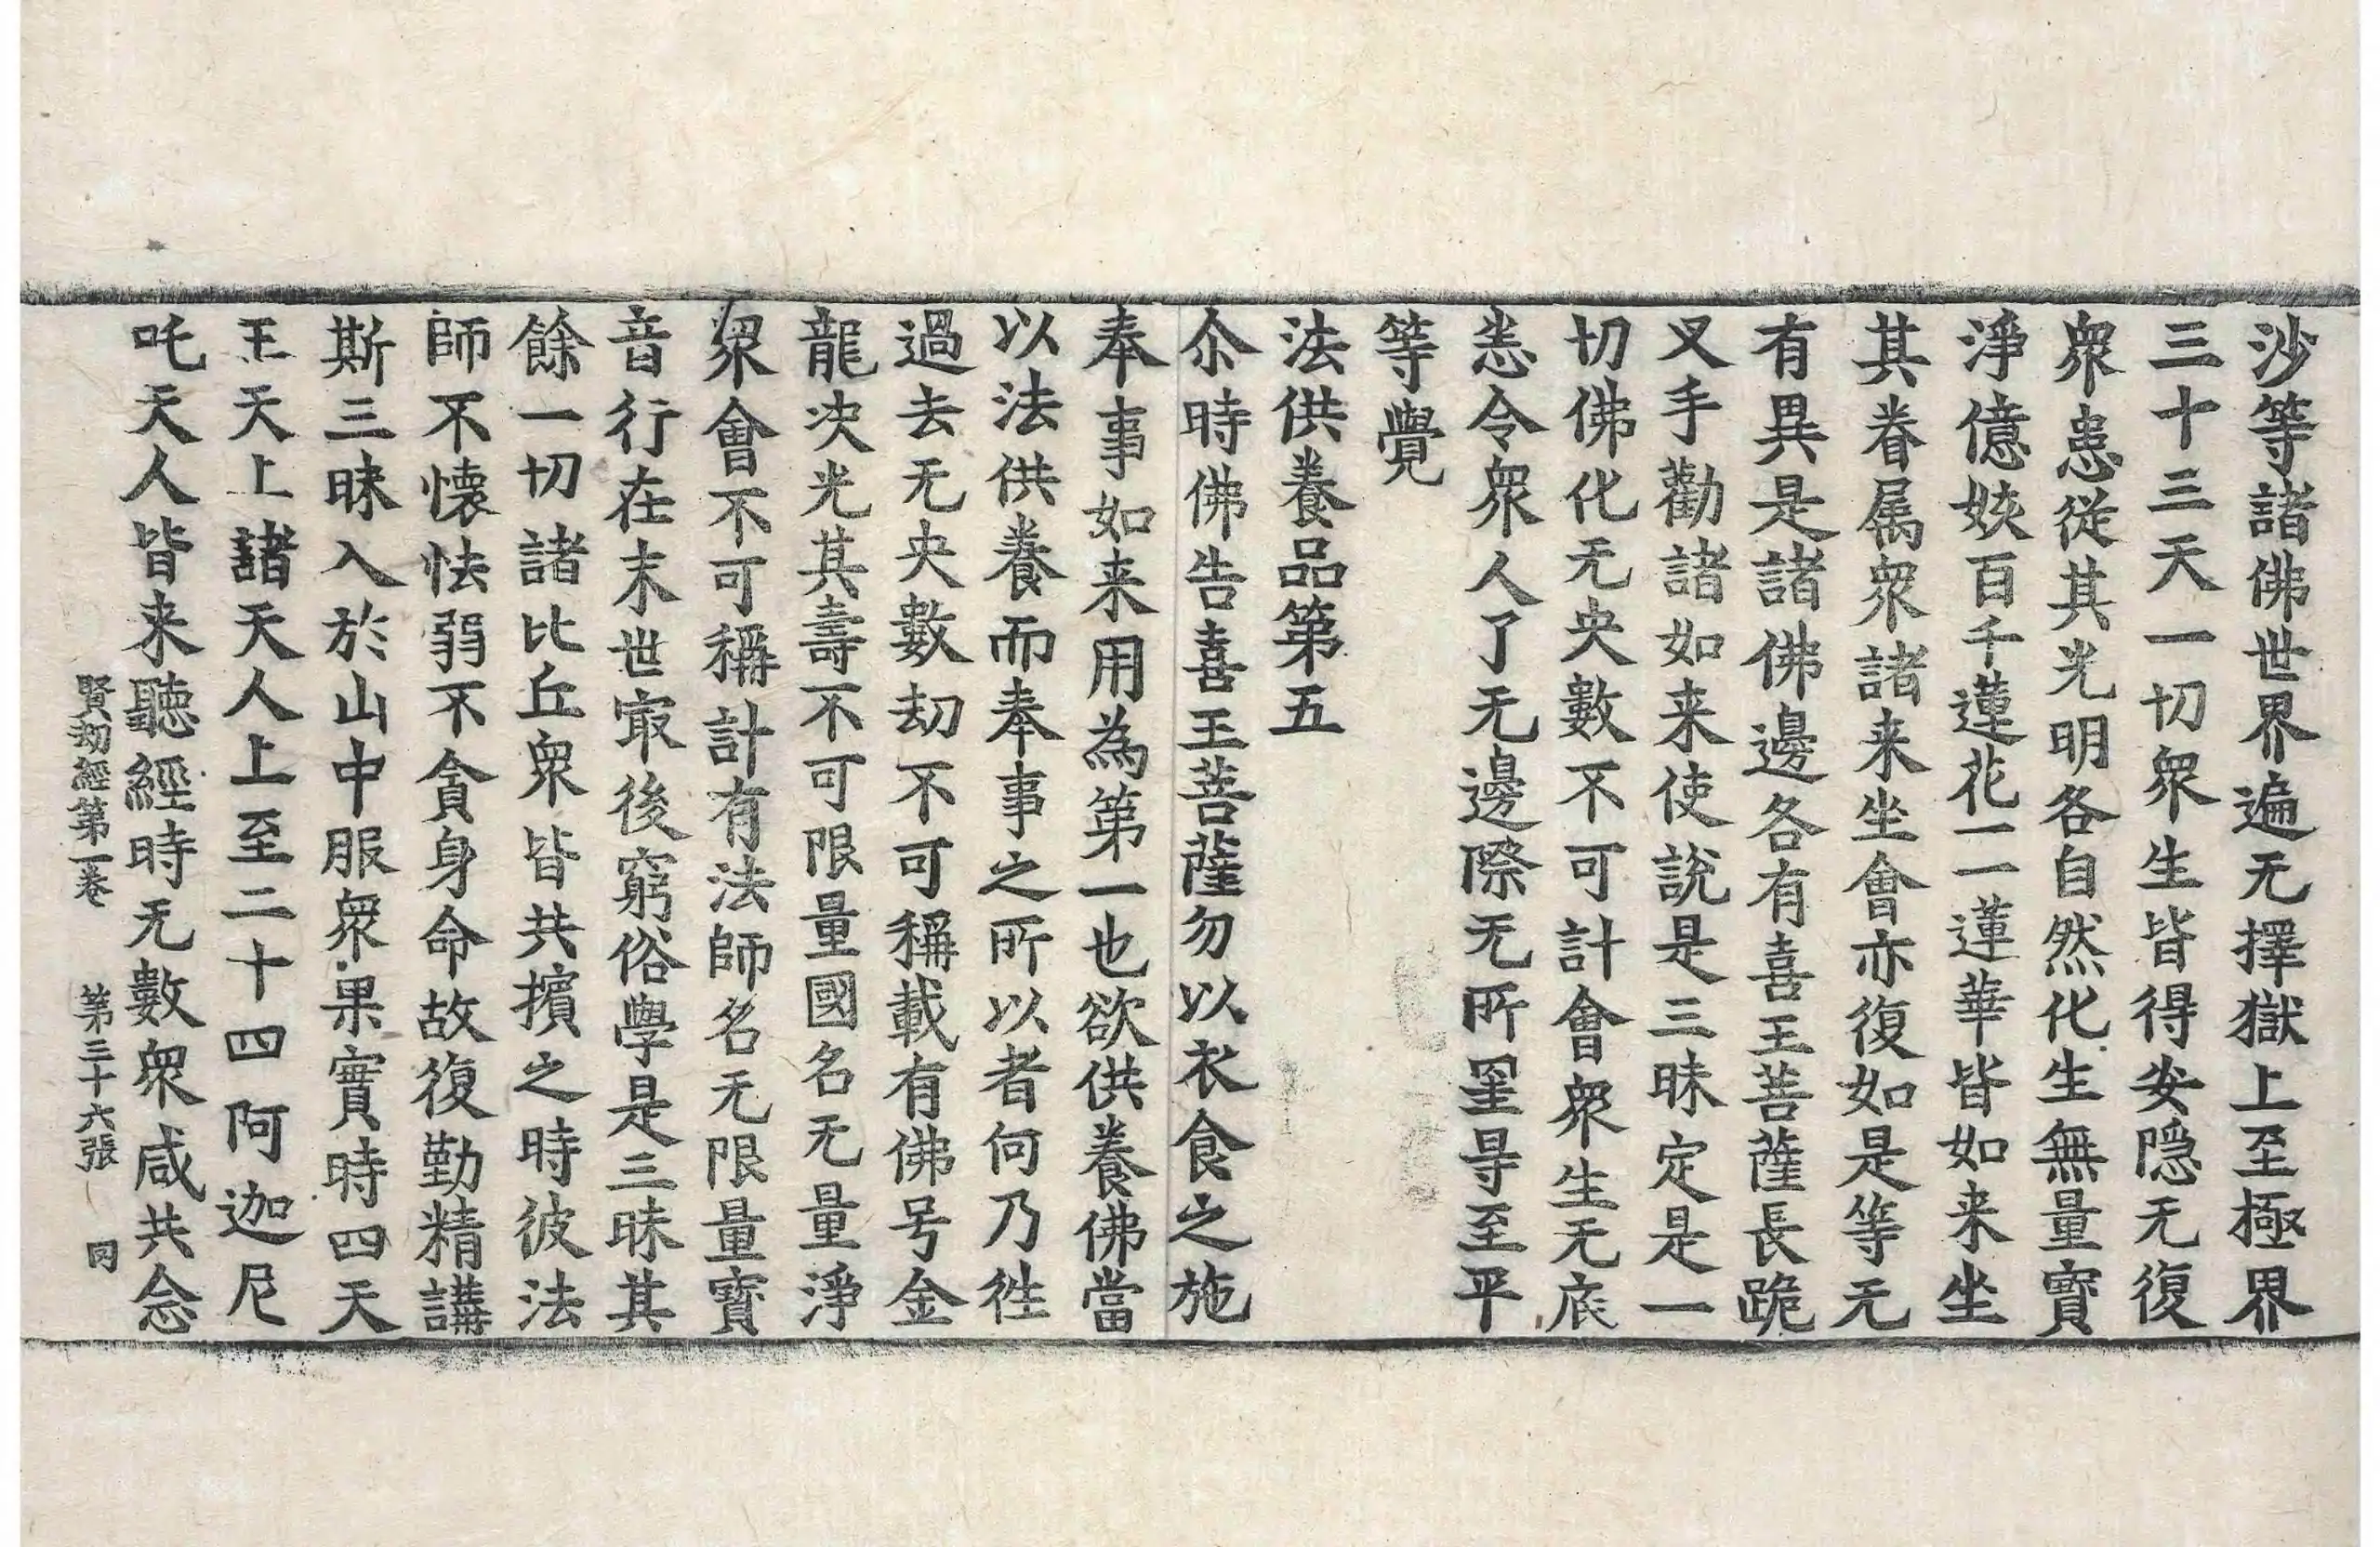 沙等諸佛世界遍无擇獄上至極界
三十三天一切衆生皆得安隠无復
衆患從其光明各自然化生無量寳
淨億姟百千蓮花一一蓮華皆如来坐
其眷属衆諸来坐會亦復如是等无
有異是諸佛邊各有喜王菩薩長跪
叉手勸諸如来使說是三昧定是一
切佛化无央數不可計會衆生无底
恙令衆人了无邊際无所罣㝵至平
等覺
法供養品第五
尒時佛告喜王菩薩勿以衣食之施
奉事如来用為第一也欲供養佛當
以法供養而奉事之所以者何乃徃
過去无央數劫不可稱載有佛号金
龍决光其壽不可限量國名无量淨
衆會不可稱計有法師名无限量寳
音行在末世冣後窮俗學是三昧其
餘一切諸比丘衆皆共擯之時彼法
師不懐怯弱不貪身命故復勤精講
斯三昧入於山中服衆果實時四天
王天上諸天人上至二十四阿迦尼
吒天人皆来聽經時无數衆咸共念
賢劫經第一卷 第三十六張 冈